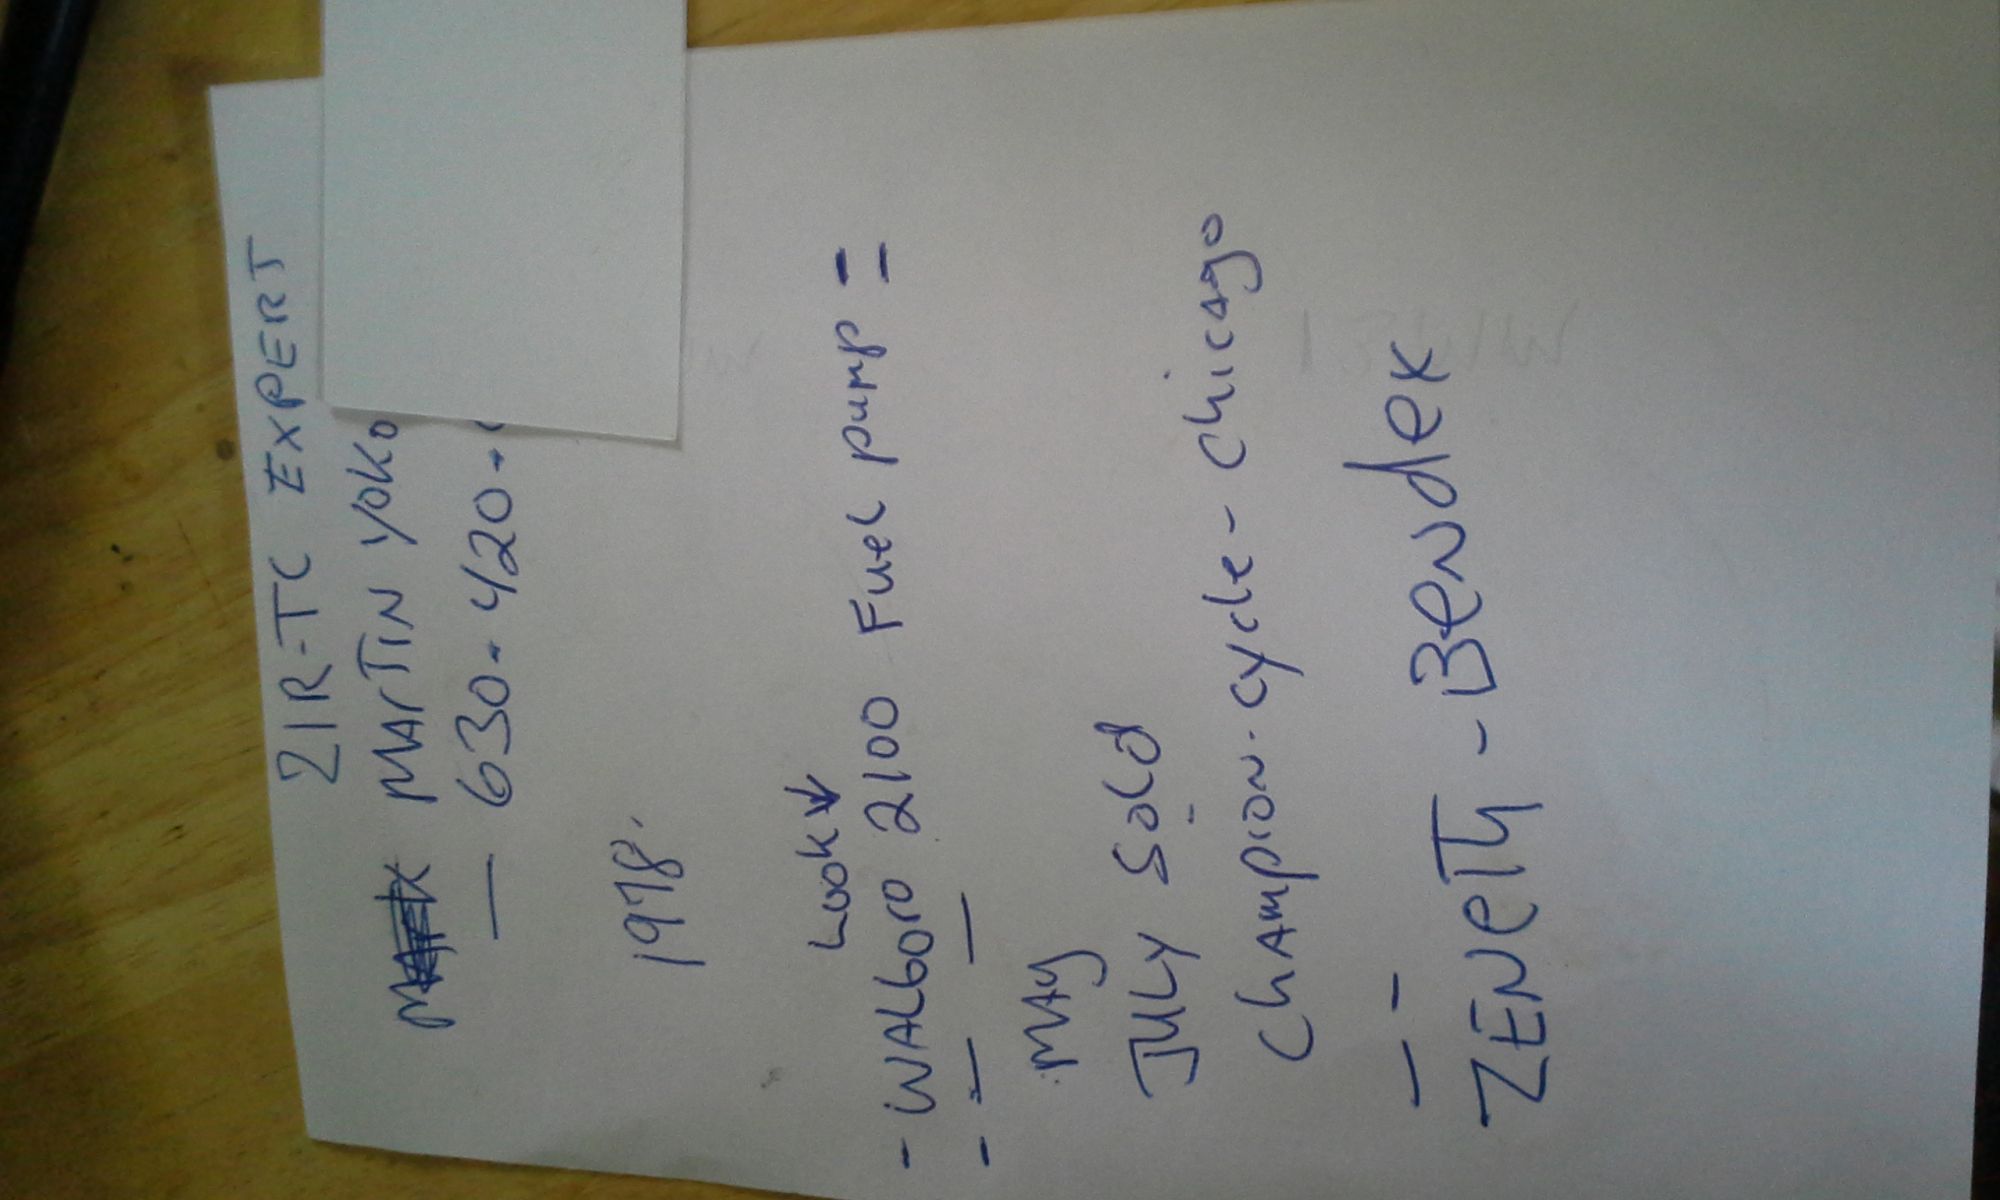 Z1R-TC EXPERT
MARTIN YOKO
— 630-420-
1978.
Look ↓
- WALboro 2100 Fuel pump =
MAy
JULy Sold
ChAmpion-cycle-chicAgo
ZENeITh - Bendex